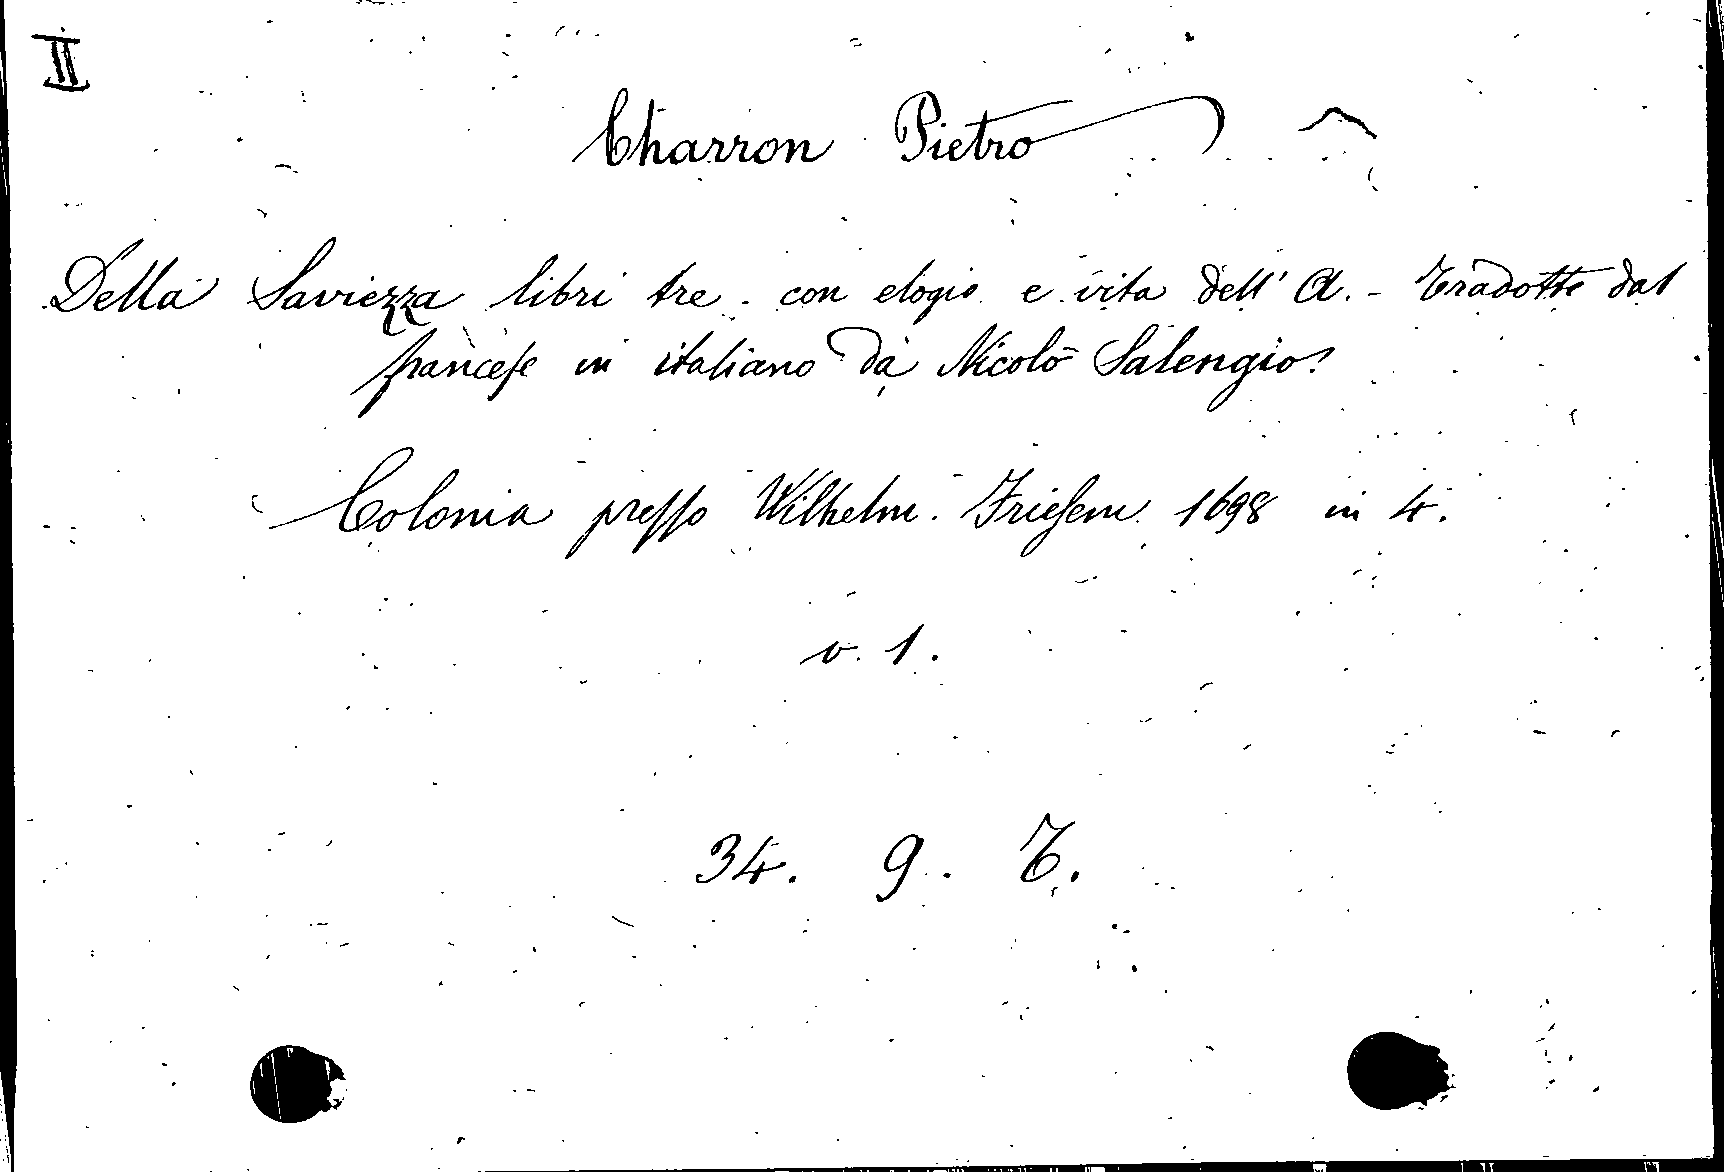 II
Charron Pietro
Della Saviezza libri tre - con elogio e vita dell' A. - Tradotte dal
francese in italiano da Nicolò Salengio.
Colonia presso Wilhelm. Friesem. 1698 in 4.
v. 1.
34. 9. T.